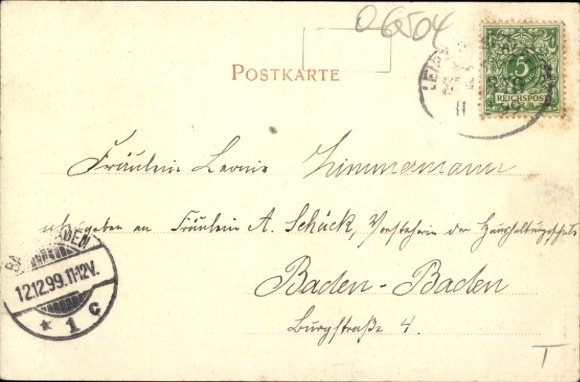 06504
5
REICHSPOST
POSTKARTE
11
Fräulein Leonie Zimmermann
abzugeben an Fräulein A. Schück, Vorsteherin der Haushaltungsschule
BADEN
12.12.99.11-12V.
* 1 c
Baden-Baden
Burgstraße 4.
T